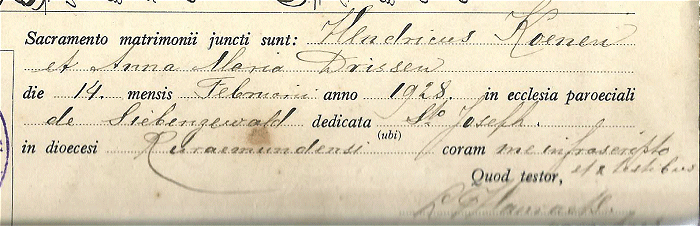 Sacramento matrimonii juncti sunt: Hendricus Koenen
et Anna Maria Drissen
die 14. mensis Februarii anno 1928. in ecclesia paroeciali
de Siebengewald dedicata Sto Joseph.
(ubi)
in dioecesi Ruraemundensi coram me infrascripto
Quod testor, et 2 testibus